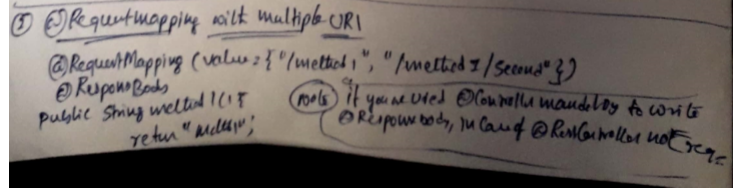 ③ @RequestMapping with multiple URI
@RequestMapping (value={"/method1", "/method1/second"})
@ResponseBody
public String method1(){
return "method1";
Note if you are used @Controller mandatory to write
@Responsebody, in case of @RestController not req.